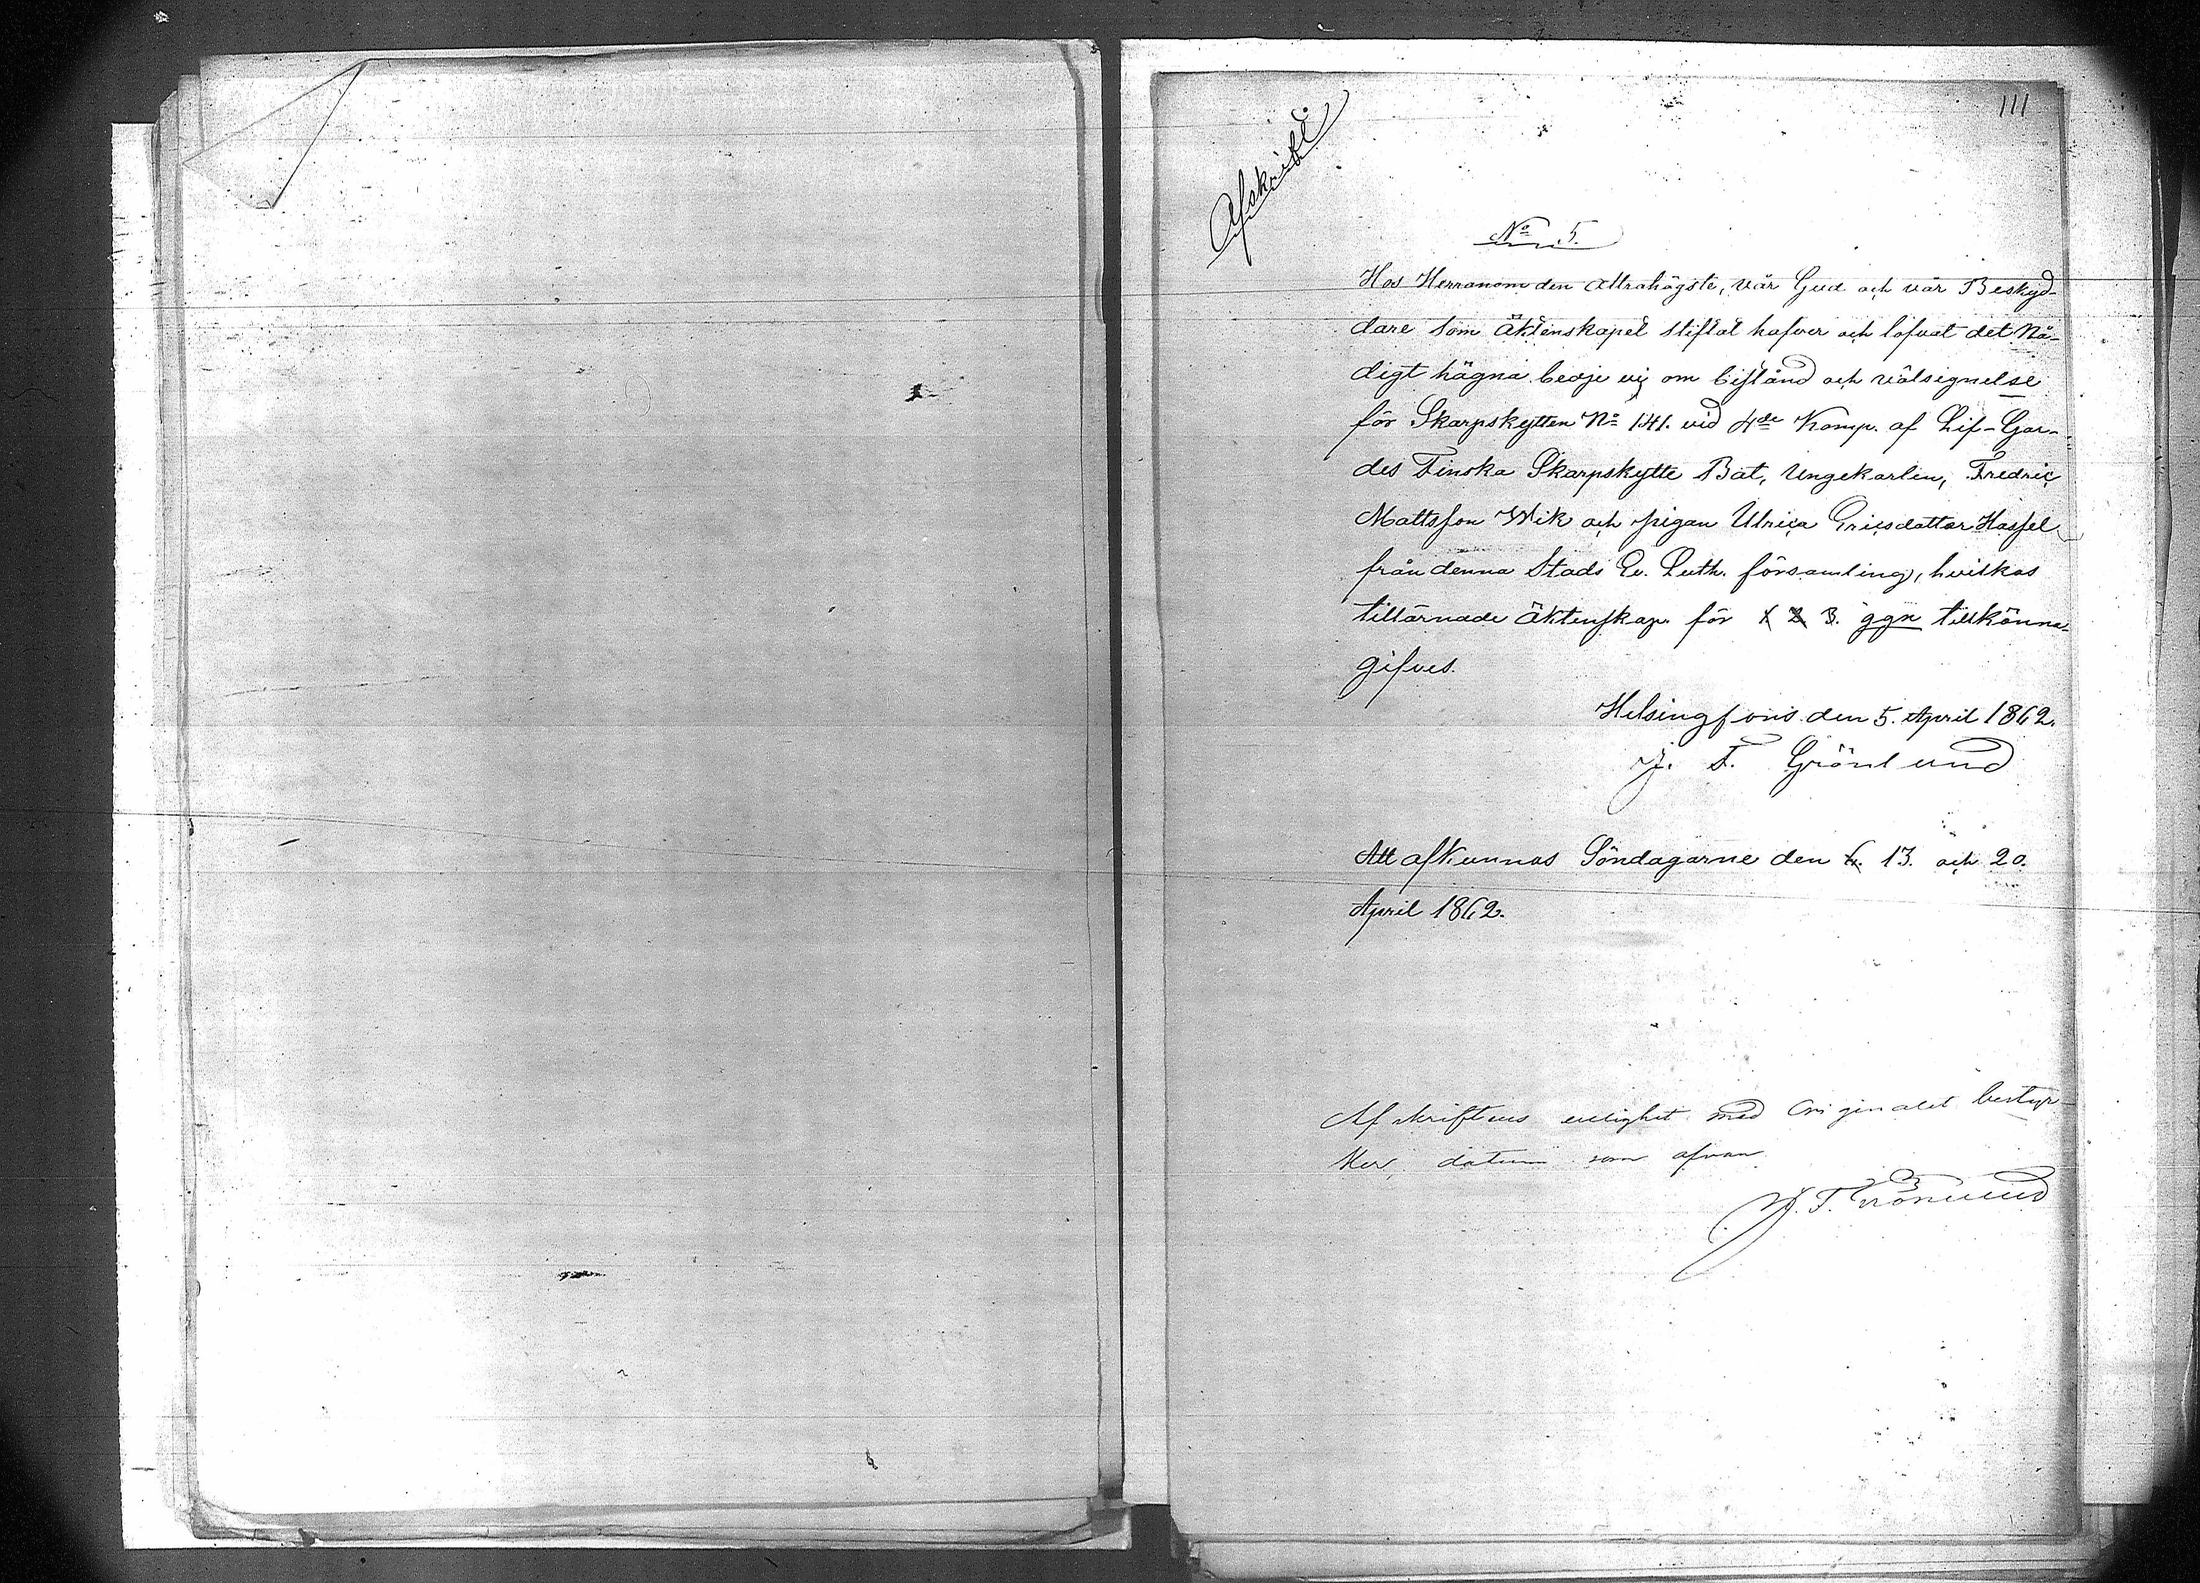 111
Afskrift.
No 5.
Hos Herranom den Allrahögste, vår Gud och vår Beskyd-
dare som Äktenskapet stiftat hafver och lofvat det Nå-
digt hägna bedje vij om bistånd och välsignelse
för Skarpskytten No 141. vid 4de Komp. af Lif-Gar-
des Finska Skarpskytte Bat, Ungekarlen, Fredric
Mattsson Wik och pigan Ulrica Ericsdotter Hassel
från denna Stads Ev. Luth. församling, hvilkas
tillärnade Äktenskap för 1 2 3. ggn tillkänna-
gifves.
Helsingfors den 5. April 1862.
J. F. Grönlund
Att afkunnas Söndagarne den 6. 13. och 20.
April 1862.
Afskriftens enlighet med Originalet bestyr-
ker, datum som ofvan
J. F. Grönlund